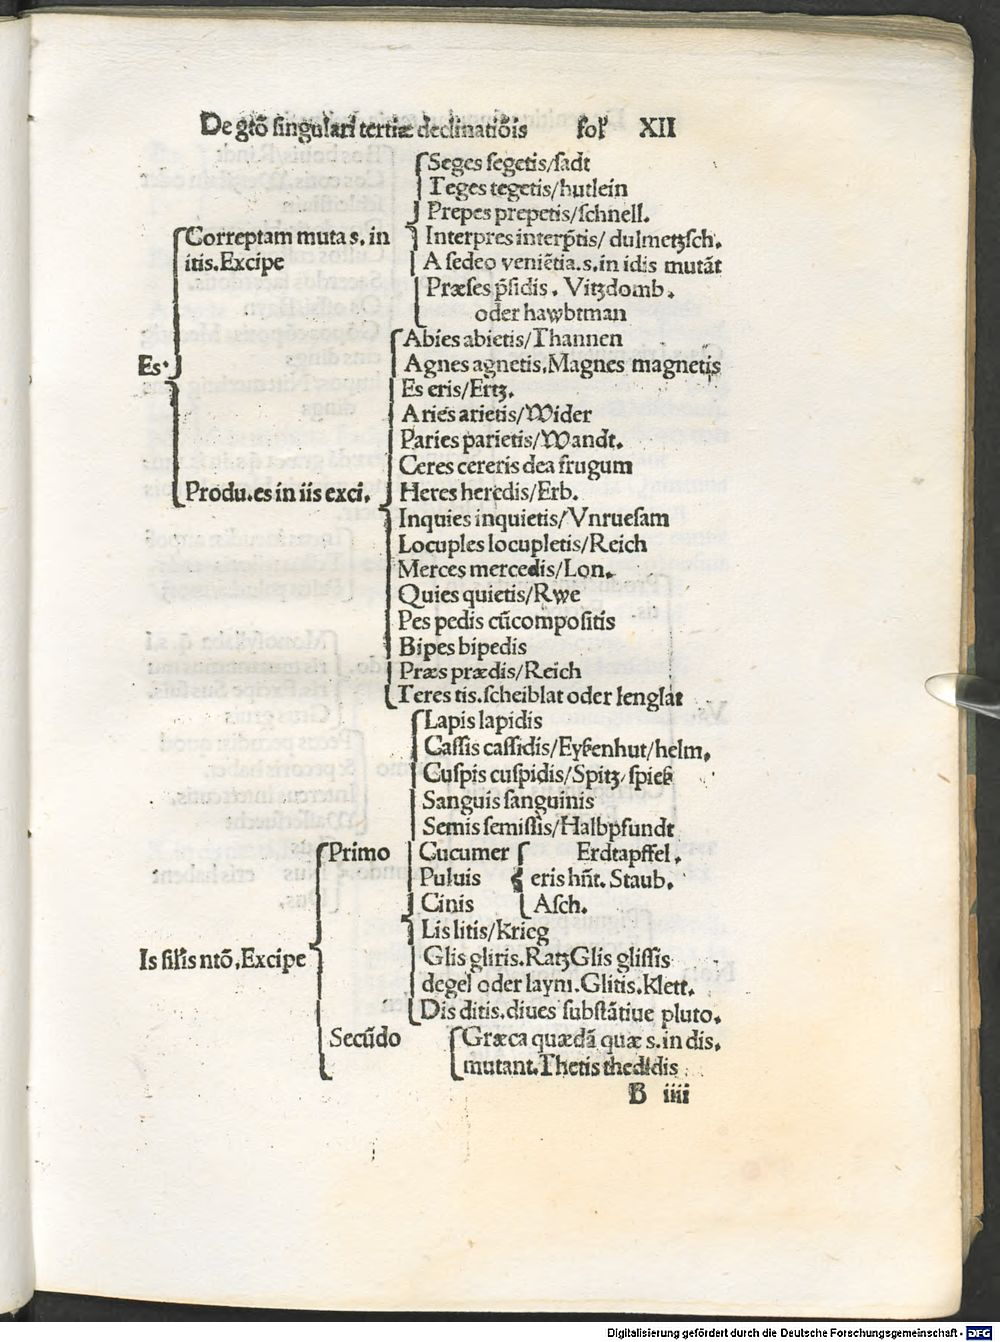 De gtõ singulari tertiæ declinatiõis fol XII
Seges segetis/sadt
Teges tegetis/hutlein
Prepes prepetis/schnell.
Correptam muta s. in
itis. Excipe
Interpres interp̃tis/ dulmetzsch.
A sedeo veniẽtia. s. in idis mutãt
Præses p̃sidis. Vitzdomb.
oder hawbtman
Es.
Abies abietis/Thannen
Agnes agnetis. Magnes magnetis
Es eris/Ertz.
Aries arietis/Wider
Paries parietis/Wandt.
Ceres cereris dea frugum
Produ. es in iis exci.
Heres heredis/Erb.
Inquies inquietis/Vnruesam
Locuples locupletis/Reich
Merces mercedis/Lon.
Quies quietis/Rwe
Pes pedis cũ compositis
Bipes bipedis
Præs prædis/Reich
Teres tis. scheiblat oder lenglat
Lapis lapidis
Cassis cassidis/Eysenhut/helm.
Cuspis cuspidis/Spitz/spiess
Sanguis sanguinis
Semis semissis/Halbpfundt
Primo
Cucumer Erdtapffel.
Puluis eris hñt. Staub.
Cinis Asch.
Lis litis/krieg
Is sil'is ntõ. Excipe
Glis gliris. Ratz Glis glissis
degel oder laym. Glitis. klett.
Dis ditis. diues substãtiue pluto.
Secũdo
Græca quædã quæ s. in dis.
mutant. Thetis thetidis
B iiii
Digitalisierung gefördert durch die Deutsche Forschungsgemeinschaft - DFG